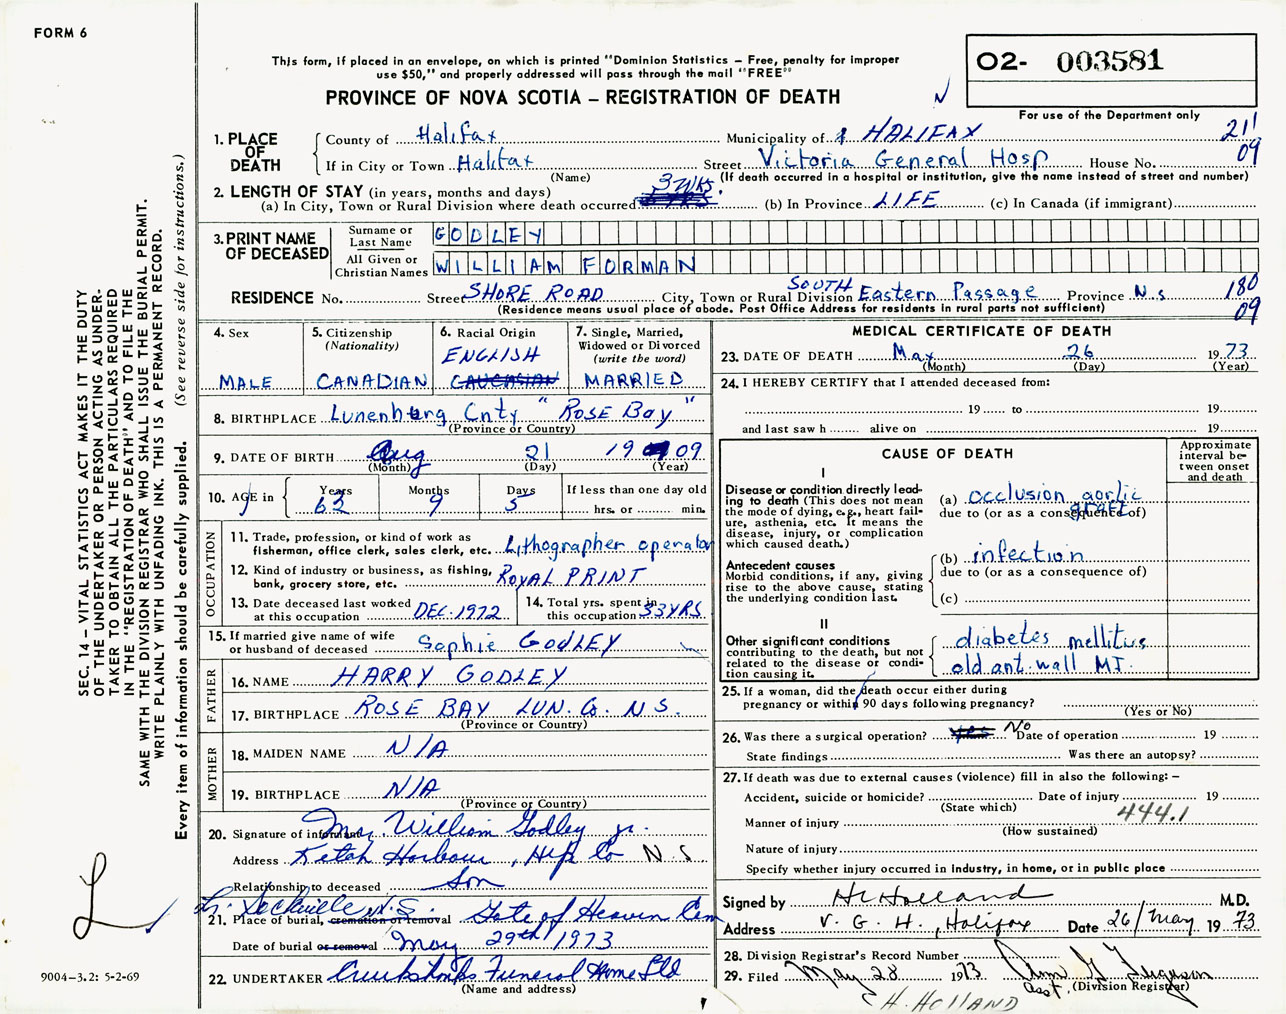 FORM 6
This form, if placed in an envelope, on which is printed "Dominion Statistics – Free, penalty for improper
use $50," and properly addressed will pass through the mail "FREE"
PROVINCE OF NOVA SCOTIA – REGISTRATION OF DEATH
02- 003581
For use of the Department only
1. PLACE OF DEATH
County of Halifax Municipality of HALIFAX 211
If in City or Town Halifax Street Victoria General Hosp House No. 09
(Name) (If death occurred in a hospital or institution, give the name instead of street and number)
2. LENGTH OF STAY (in years, months and days) 3 WKS.
(a) In City, Town or Rural Division where death occurred (b) In Province LIFE (c) In Canada (if immigrant)
3. PRINT NAME OF DECEASED
Surname or Last Name GODLEY
All Given or Christian Names WILLIAM FORMAN
RESIDENCE No. Street SHORE ROAD City, Town or Rural Division SOUTH Eastern Passage Province N.S 180
(Residence means usual place of abode. Post Office Address for residents in rural parts not sufficient) 09
4. Sex
MALE
5. Citizenship
(Nationality)
CANADIAN
6. Racial Origin
ENGLISH
CAUCASIAN
7. Single, Married,
Widowed or Divorced
(write the word)
MARRIED
8. BIRTHPLACE Lunenburg Cnty "ROSE BAY"
(Province or Country)
9. DATE OF BIRTH Aug 21 19 09
(Month) (Day) (Year)
10. AGE in
Years Months Days If less than one day old
63 9 5 hrs. or min.
OCCUPATION
11. Trade, profession, or kind of work as
fisherman, office clerk, sales clerk, etc. Lithographer operator
12. Kind of industry or business, as fishing,
bank, grocery store, etc. ROYAL PRINT
13. Date deceased last worked
at this occupation DEC. 1972
14. Total yrs. spent in
this occupation 33YRS
15. If married give name of wife
or husband of deceased Sophie GODLEY
FATHER
16. NAME HARRY GODLEY
17. BIRTHPLACE ROSE BAY LUN. Co. N S.
(Province or Country)
MOTHER
18. MAIDEN NAME N/A
19. BIRTHPLACE N/A
(Province or Country)
20. Signature of informant William Godley jr.
Address Ketch Harbour, Hfx Co N.S
Relationship to deceased Son
Lr. Sackville N.S.
21. Place of burial, cremation or removal Gate of Heaven Cem
Date of burial or removal May 29th/1973
22. UNDERTAKER Cruikshanks Funeral Home Ltd
(Name and address)
MEDICAL CERTIFICATE OF DEATH
23. DATE OF DEATH May 26 1973
(Month) (Day) (Year)
24. I HEREBY CERTIFY that I attended deceased from:
19 to 19
and last saw h alive on 19
CAUSE OF DEATH
Approximate
interval be-
tween onset
and death
I
Disease or condition directly lead-
ing to death (This does not mean
the mode of dying, e.g., heart fail-
ure, asthenia, etc. It means the
disease, injury, or complication
which caused death.)
(a) occlusion aortic graft
due to (or as a consequence of)
Antecedent causes
Morbid conditions, if any, giving
rise to the above cause, stating
the underlying condition last.
(b) infection
due to (or as a consequence of)
(c)
II
Other significant conditions
contributing to the death, but not
related to the disease or condi-
tion causing it.
diabetes mellitus
old ant. wall MI.
25. If a woman, did the death occur either during
pregnancy or within 90 days following pregnancy?
(Yes or No)
26. Was there a surgical operation? yes No Date of operation 19
State findings Was there an autopsy?
27. If death was due to external causes (violence) fill in also the following: –
Accident, suicide or homicide? Date of injury 19
(State which)
Manner of injury 444.1
(How sustained)
Nature of injury
Specify whether injury occurred in Industry, in home, or in public place
Signed by H Holland M.D.
Address V. G. H., Halifax Date 26/May 1973
28. Division Registrar's Record Number
29. Filed May 28 1973 Ann G Ferguson
Asst. (Division Registrar)
H. HOLLAND
SEC. 14 – VITAL STATISTICS ACT MAKES IT THE DUTY
OF THE UNDERTAKER OR PERSON ACTING AS UNDER-
TAKER TO OBTAIN ALL THE PARTICULARS REQUIRED
IN THE "REGISTRATION OF DEATH" AND TO FILE THE
SAME WITH THE DIVISION REGISTRAR WHO SHALL ISSUE THE BURIAL PERMIT.
WRITE PLAINLY WITH UNFADING INK. THIS IS A PERMANENT RECORD.
Every item of information should be carefully supplied. (See reverse side for instructions.)
L
9004–3.2: 5-2-69